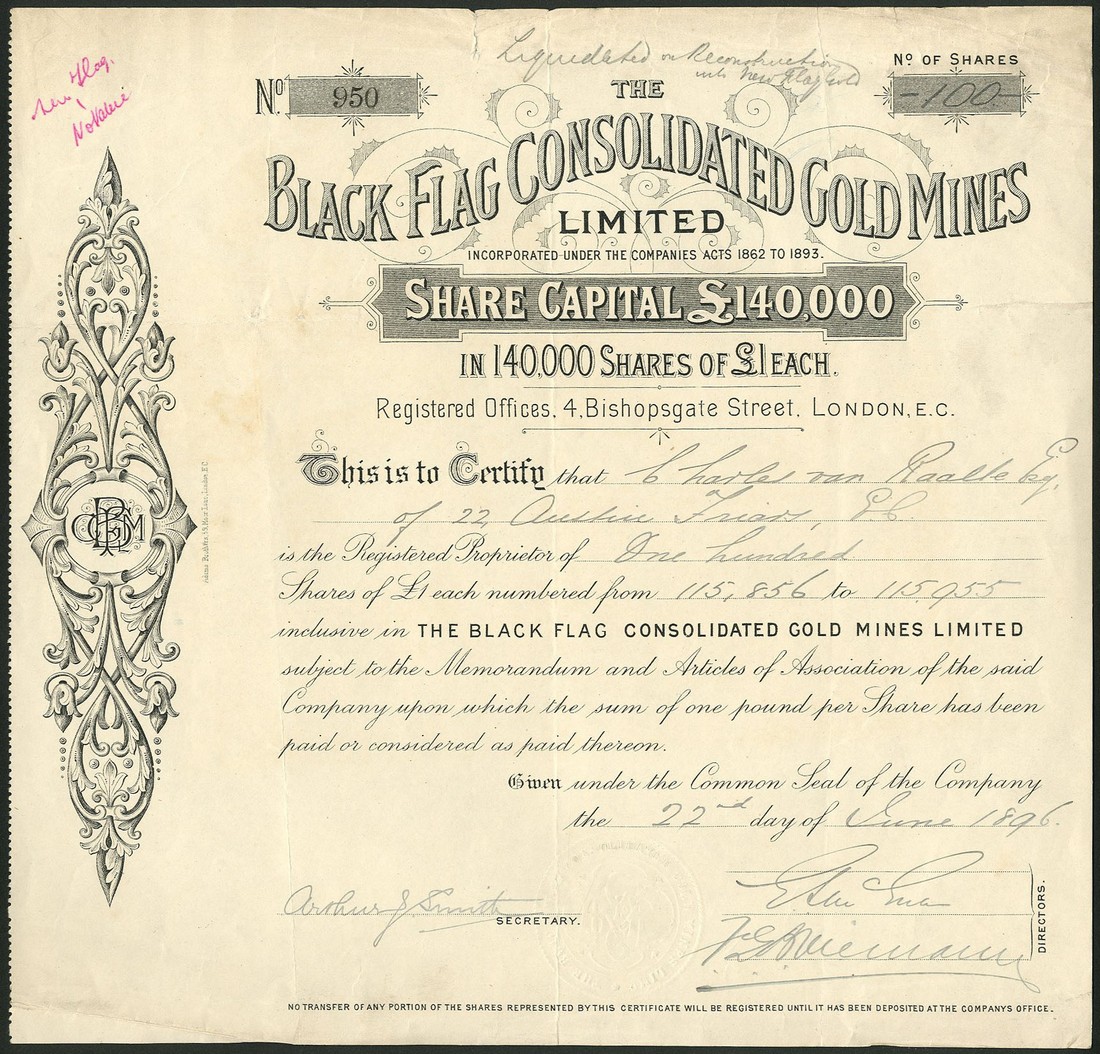 Liquidated on Reconstruction
into New Flag Gold
New Flag.
No Value
No. 950
No OF SHARES
-100-
THE
BLACK FLAG CONSOLIDATED GOLD MINES
LIMITED
INCORPORATED UNDER THE COMPANIES ACTS 1862 TO 1893.
SHARE CAPITAL £140,000
IN 140,000 SHARES OF £1 EACH.
Registered Offices, 4, Bishopsgate Street, LONDON, E.C.
This is to Certify that Charles van Raalte Esq.
of 22 Austin Friars, EC
is the Registered Proprietor of One hundred
Shares of £1 each numbered from 115,856 to 115,955
inclusive in THE BLACK FLAG CONSOLIDATED GOLD MINES LIMITED
subject to the Memorandum and Articles of Association of the said
Company upon which the sum of one pound per Share has been
paid or considered as paid thereon.
Given under the Common Seal of the Company
the 22nd day of June 1896.
Arthur J. Smith
SECRETARY.
DIRECTORS.
NO TRANSFER OF ANY PORTION OF THE SHARES REPRESENTED BY THIS CERTIFICATE WILL BE REGISTERED UNTIL IT HAS BEEN DEPOSITED AT THE COMPANYS OFFICE.